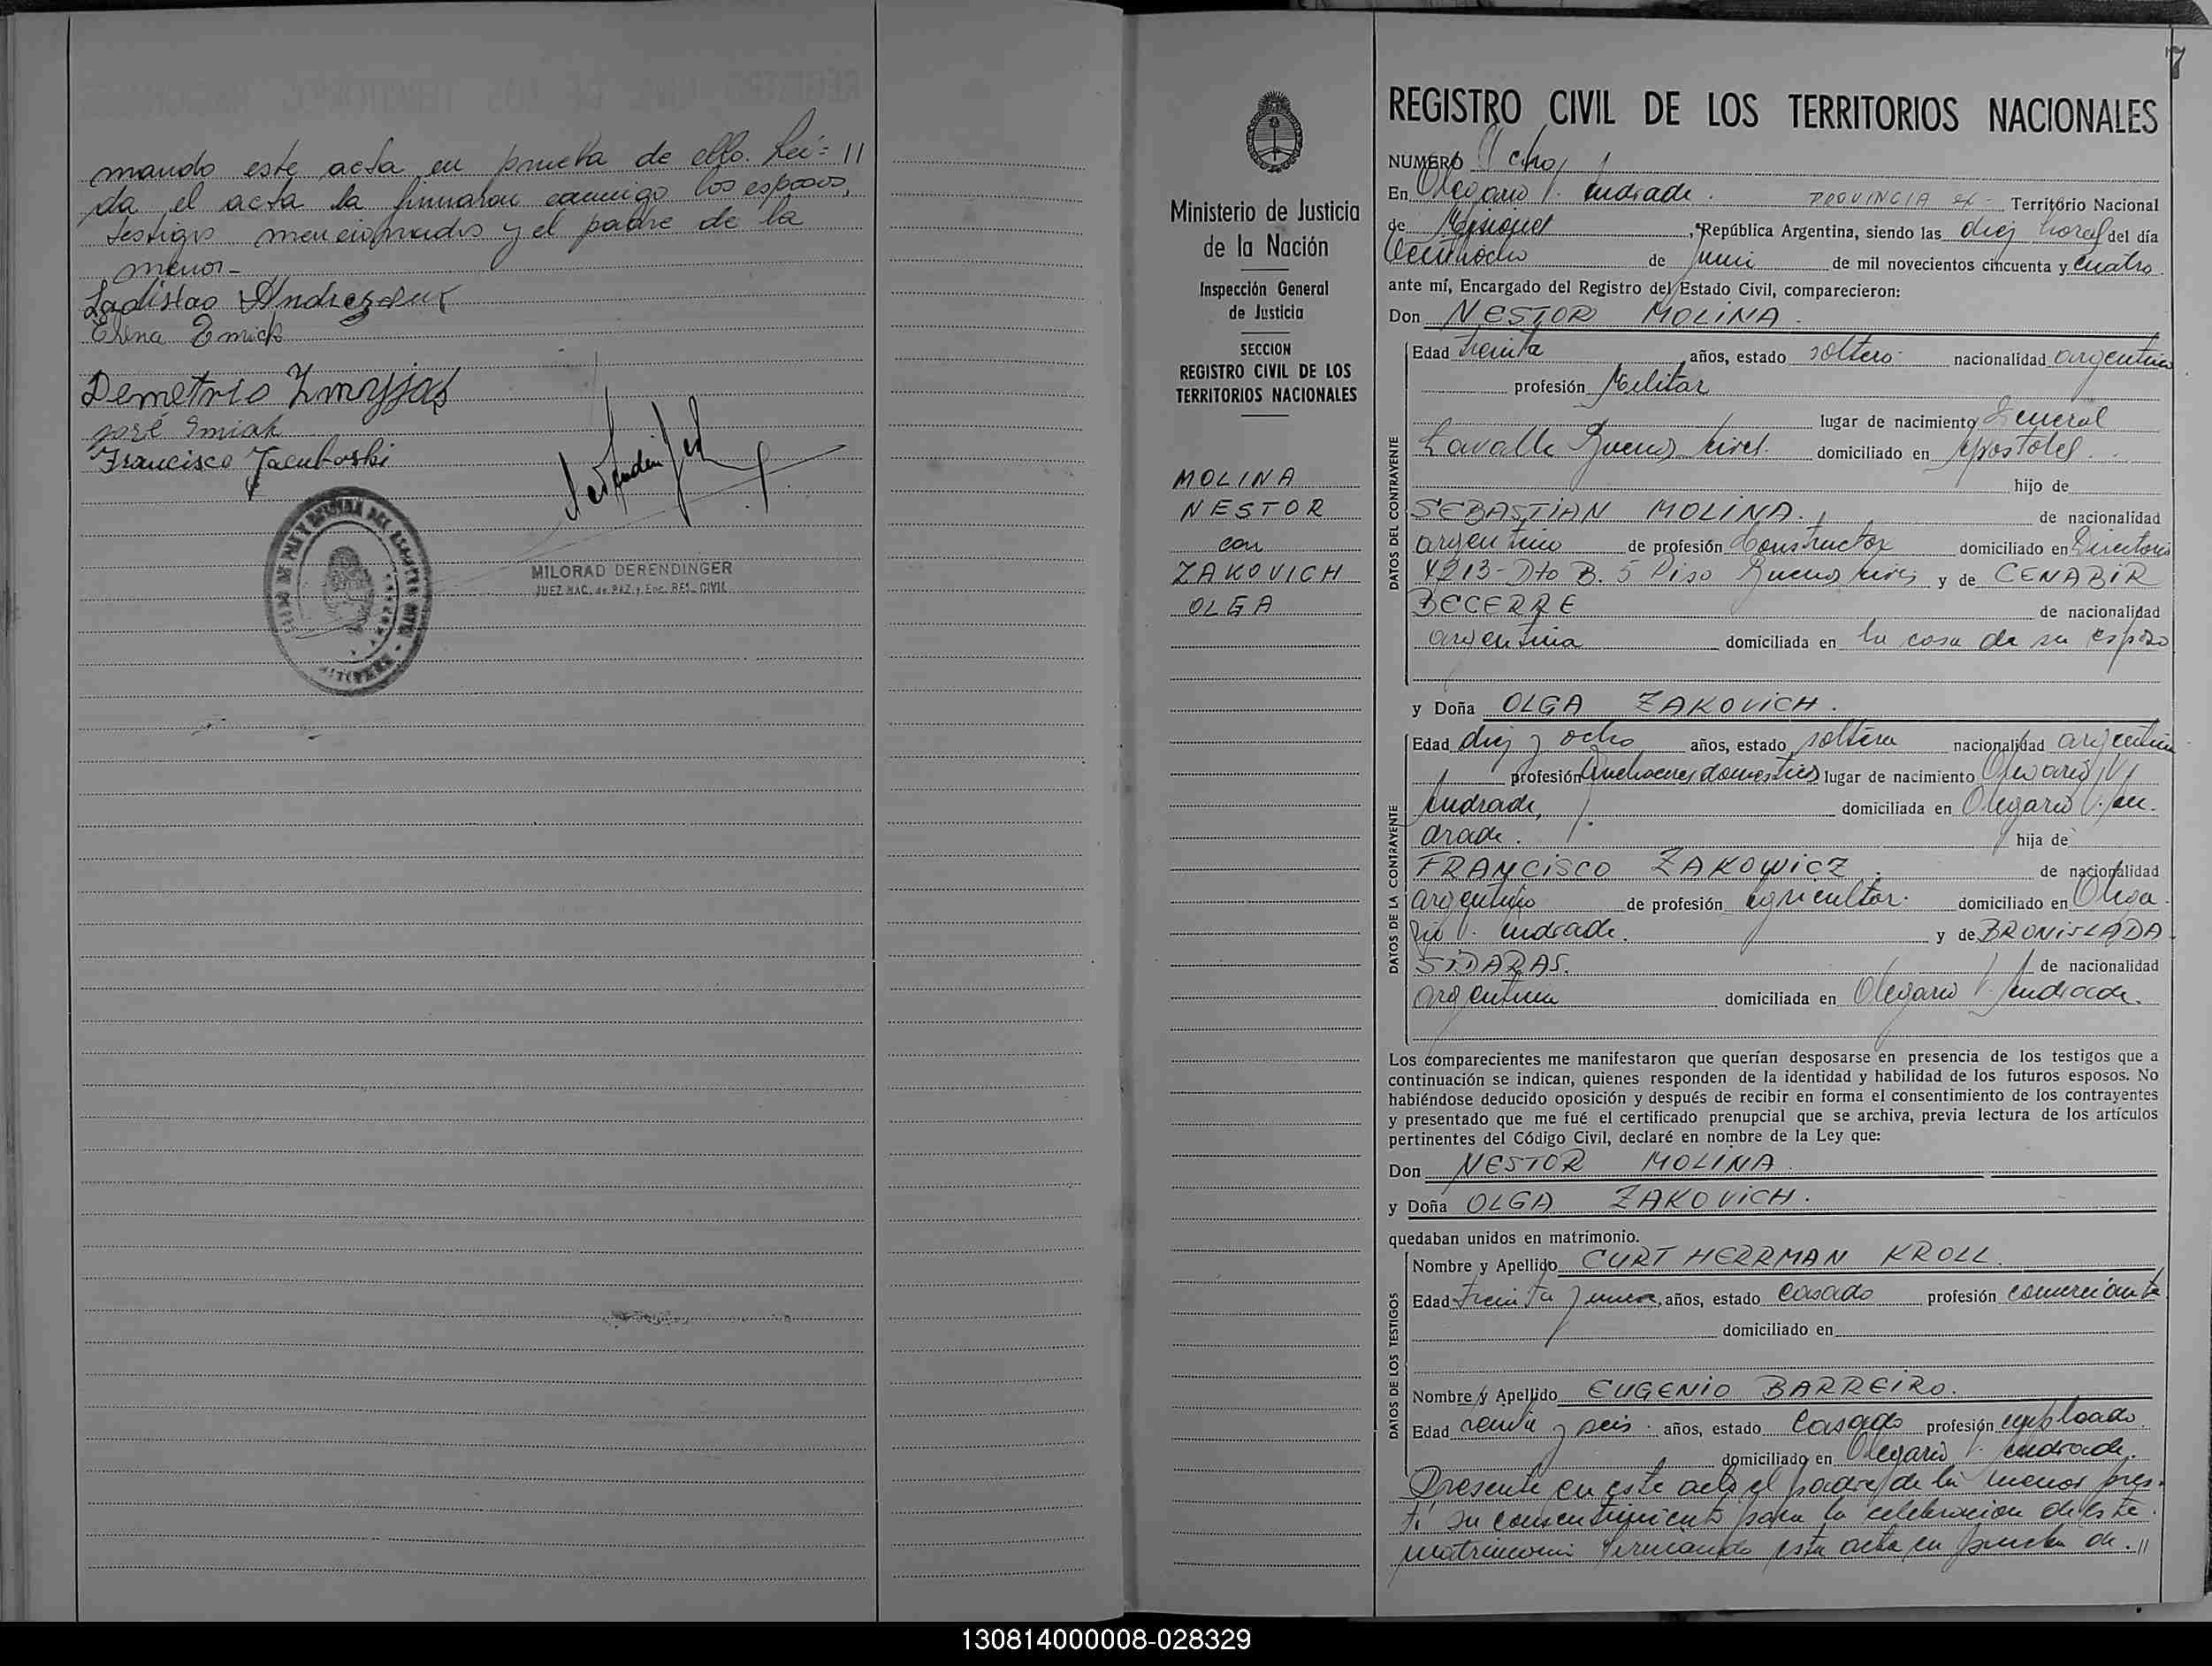 mando este acta en prueba de ello. Lei= 11
da el acta la firmaron conmigo los esposos,
testigos mencionados y el padre de la
menor-
Ladislao
Elena
Demetrio
José
Francisco Jacuboski
MILORAD DERENDINGER
JUEZ NAC. de PAZ y Enc. REG. CIVIL
7
Ministerio de Justicia
de la Nación
Inspección General
de Justicia
SECCION
REGISTRO CIVIL DE LOS
TERRITORIOS NACIONALES
MOLINA
NESTOR
con
ZAKOVICH
OLGA
REGISTRO CIVIL DE LOS TERRITORIOS NACIONALES
NUMERO Ocho
En Olegario V. Andrade. PROVINCIA ex- Territorio Nacional
de Misiones, República Argentina, siendo las diez horas del día
veintiocho de Junio de mil novecientos cincuenta y cuatro
ante mí, Encargado del Registro del Estado Civil, comparecieron:
Don NESTOR MOLINA.
DATOS DEL CONTRAYENTE
Edad treinta años, estado soltero nacionalidad argentina
profesión Militar
lugar de nacimiento General
Lavalle Buenos Aires. domiciliado en Apostoles.
hijo de
SEBASTIAN MOLINA. de nacionalidad
argentino de profesión Constructor domiciliado en Directorio
4213- Dto B. 5 Piso Buenos Aires y de CENABIR
BECERRE de nacionalidad
argentina domiciliada en la casa de su esposo
y Doña OLGA ZAKOVICH.
DATOS DE LA CONTRAYENTE
Edad diez y ocho años, estado soltera nacionalidad argentina
profesión Quehaceres domesticos lugar de nacimiento Olegario V.
Andrade, domiciliada en Olegario V. An-
drade. hija de
FRANCISCO ZAKOWICZ. de nacionalidad
argentino de profesión agricultor. domiciliado en Olega-
rio V. Andrade. y de BRONISLADA
SIDARAS. de nacionalidad
argentina domiciliada en Olegario V. Andrade.
Los comparecientes me manifestaron que querían desposarse en presencia de los testigos que a
continuación se indican, quienes responden de la identidad y habilidad de los futuros esposos. No
habiéndose deducido oposición y después de recibir en forma el consentimiento de los contrayentes
y presentado que me fué el certificado prenupcial que se archiva, previa lectura de los artículos
pertinentes del Código Civil, declaré en nombre de la Ley que:
Don NESTOR MOLINA.
y Doña OLGA ZAKOVICH.
quedaban unidos en matrimonio.
DATOS DE LOS TESTIGOS
Nombre y Apellido CURT HERRMAN KROLL.
Edad treinta y nueve, años, estado casado profesión comerciante
domiciliado en
Nombre y Apellido EUGENIO BARREIRO.
Edad y seis. años, estado Casado profesión empleado.
domiciliado en Olegario V. Andrade.
Presente en este acto el padre de la menor pres-
tó su consentimiento para la celebracion de este
matrimonio firmando esta acta en prueba de. 11
130814000008-028329